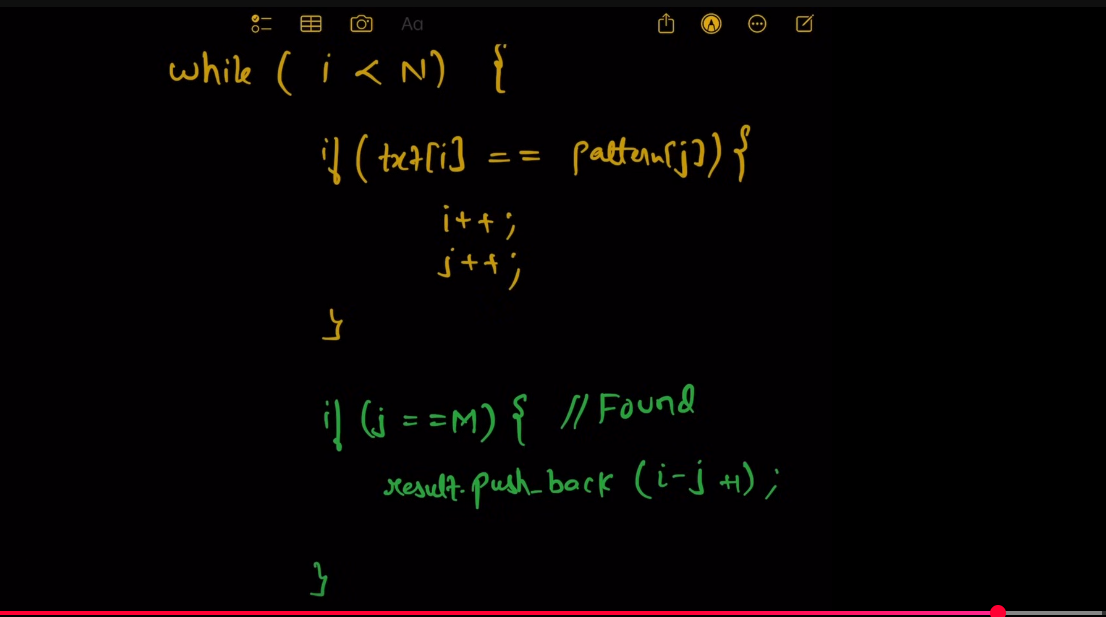 Aa
while ( i < N) {
if (txt[i] == pattern[j]) {
i++;
j++;
}
if (j ==M) { // Found
result.push_back (i-j+1);
}